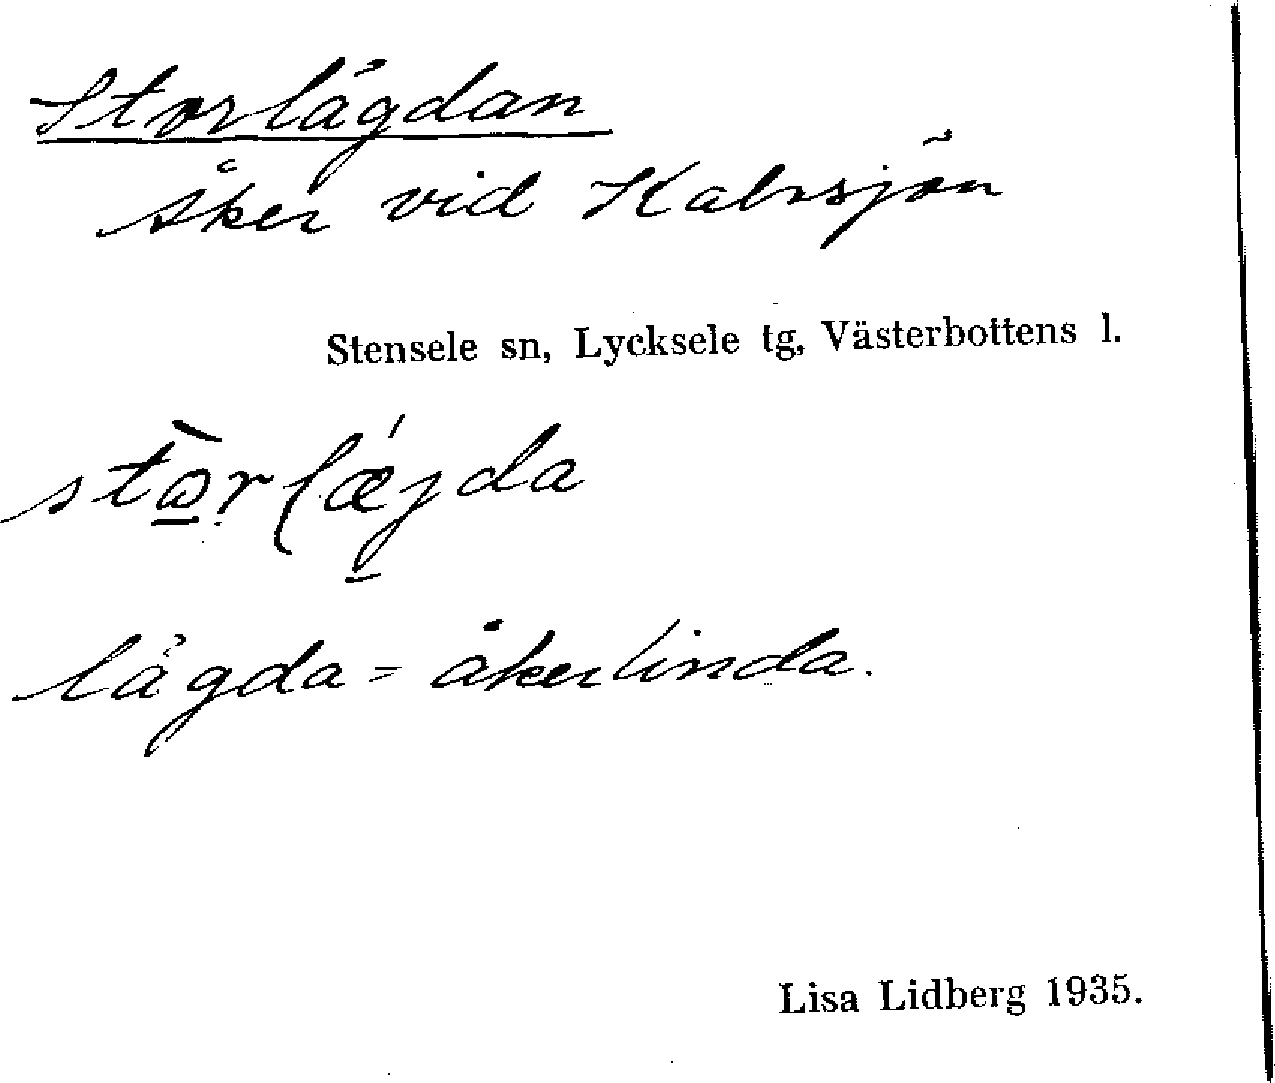 Storlägdan
Åker vid Kalvsjön
Stensele sn, Lycksele tg, Västerbottens l.
lägda = åkerlinda.
Lisa Lidberg 1935.